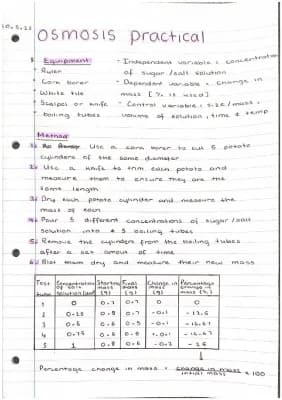 osmosis practical
Equipment - Independent variable : concentration
Ruler of sugar/salt solution
Cork borer - Dependent variable : change in
White tile mass [% is used]
Scalpel or knife - Control variable : size/mass,
boiling tubes volume of solution, time & temp
Method
1. Use a cork borer to cut 5 potato
cylinders of the same diameter
2. Use a knife to trim each potato and
measure them to ensure they are the
same length
3. Dry each potato cylinder and measure the
mass of each
4. Pour 5 different concentrations of sugar/salt
solution into 5 boiling tubes
5. Remove the cylinders from the boiling tubes
after a set amount of time
6. Blot them dry and measure their new mass
Test tube Concentration of salt solution Starting mass (g) Final mass (g) Change in mass (g) Percentage change in mass (%)
1 0 0.7 0.7 0 0
2 0.25 0.8 0.7 -0.1 -12.5
3 0.5 0.6 0.5 -0.1 -16.67
4 0.75 0.6 0.5 -0.1 -16.67
5 1 0.8 0.6 -0.2 -25
Percentage change in mass = change in mass / initial mass × 100